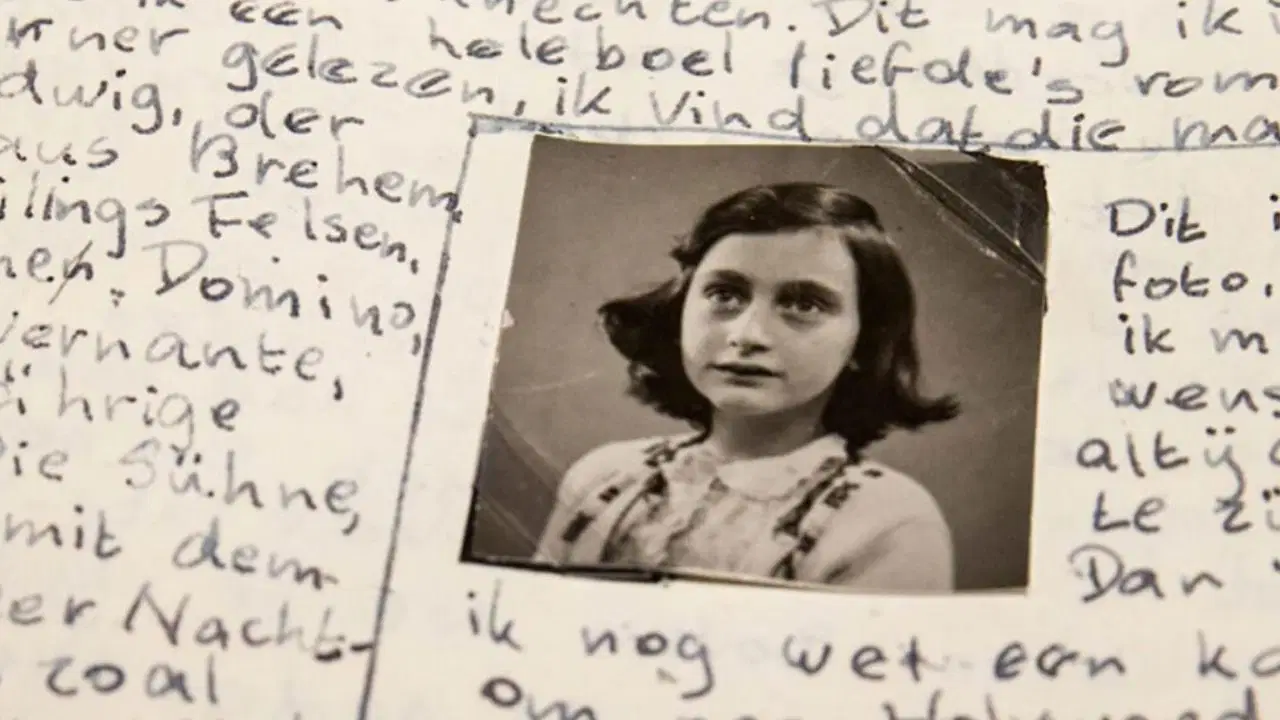 ik een knechten. Dit mag ik
ner gelezen, heleboel liefde's rom
dwig, der ik vind dat die ma
aus Brehem,
ilings Felsen,
nen, Domino,
vernante,
ährige
Die Sühne,
mit dem
der Nacht-
zoal
Dit i
foto,
ik m
wens
altijd
te zij
Dan
ik nog wel een ka
om naar Holywood